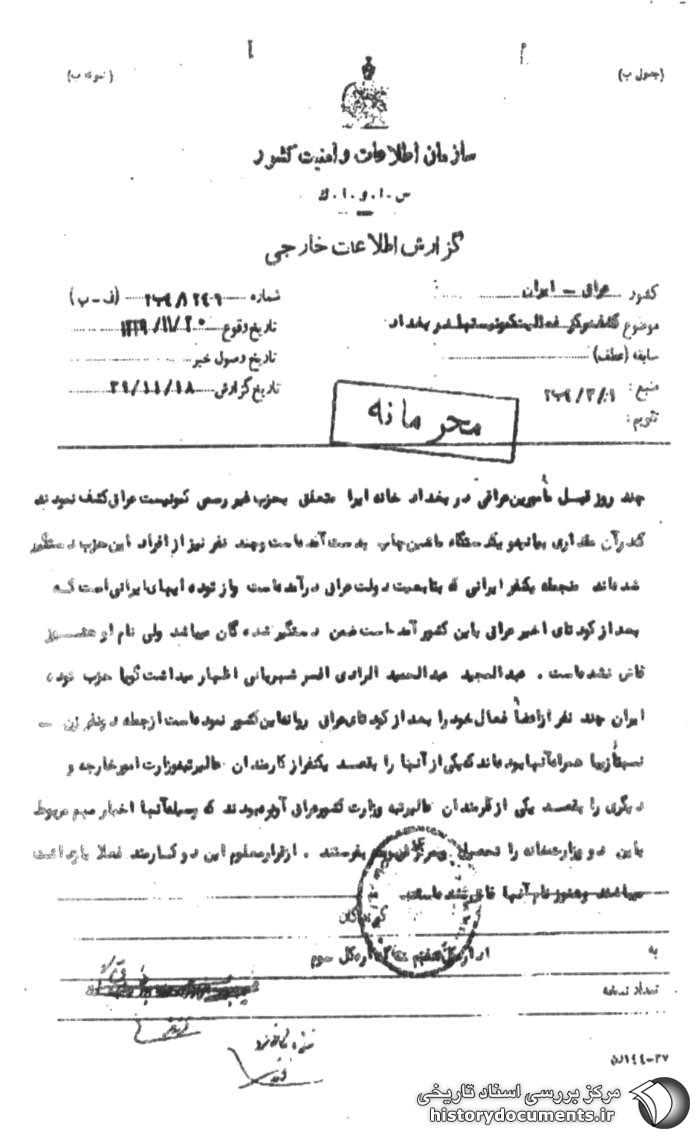 (جدول ب)
(نمونه ب)
سازمان اطلاعات و امنیت کشور
س.ا.و.ا.ك
گزارش اطلاعات خارجی
کشور عراق - ایران
شماره (ف-ب)
موضوع کشف مرکز فعالیت کمونیستها در بغداد
تاریخ وقوع ۱۳۳۹/۱۱/۲۰
سابقه (عطف)
تاریخ وصول خبر
منبع:
تاریخ گزارش ۳۹/۱۱/۱۸
تقویم:
محرمانه
چند روز قبل مأمورین عراقی در بغداد خانه ایرا متعلق بحزب غیر رسمی کمونیست عراق کشف نمودند
که در آن مقداری بیانیه و یکدستگاه ماشین چاپ بدست آمده است و چند نفر نیز از افراد این حزب دستگیر
شده اند منجمله یکنفر ایرانی که بتابعیت دولت عراق درآمده است و از توده ایهای ایرانی است که
بعد از کودتای اخیر عراق باین کشور آمده است ضمن دستگیر شده گان میباشد ولی نام او هنوز
فاش نشده است . عبدالمجید عبدالحمید الرادی افسر شهربانی اظهار میداشت گویا حزب توده
ایران چند نفر از اعضأ فعال خود را بعد از کودتای عراق روانه این کشور نموده است از جمله دو نفر زن -
نسبتاً زیبا همراه آنها بوده اند که یکی از آنها را بقصد یکنفر از کارمندان عالیرتبه وزارت امور خارجه و
دیگری را بقصد یکی از کارمندان عالیرتبه وزارت کشور عراق آورده بودند که بوسیله آنها اخبار مهم مربوط
باین دو وزارتخانه را تحصیل و بمرکز بفرستند . از قرار معلوم این دو کارمند فعلا بازداشت
میباشند و هنوز نام آنها فاش نشده است.
گیرندگان
به اداره کل سوم
تعداد نسخه
مرکز بررسی اسناد تاریخی
historydocuments.ir